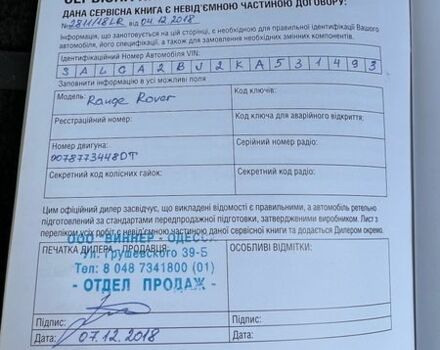 ДАНА СЕРВІСНА КНИГА Є НЕВІД'ЄМНОЮ ЧАСТИНОЮ ДОГОВОРУ:
№ 2811/18LR від 04.12.2018
Інформація, що занотовується на цій сторінці, є необхідною для правильної ідентифікації Вашого
автомобіля, його специфікації, а також для замовлення необхідних змінних компонентів.
Ідентифікаційний Номер Автомобіля VIN:
S A L G A 2 B J 2 K A 5 3 1 4 9 3
Заповнити інформацію в усі можливі поля
Модель: Range Rover
Код ключів:
Реєстраційний номер:
Код ключа для аварійного відкриття:
Номер двигуна:
0078773448DT
Серійний номер радіо:
Секретний код колісних гайок:
Секретний код радіо:
Цим офіційний дилер засвідчує, що викладені відомості є правильними, а автомобіль ретельно
підготовлений за стандартами передпродажної підготовки, затвердженими виробником. Лист з
переліком усіх робіт є невід'ємною частиною даної сервісної книги та додається Дилером окремо.
ООО "ВИННЕР - ОДЕССА"
ПЕЧАТКА ДИЛЕРА - ПРОДАВЦЯ:
ОСОБЛИВІ ВІДМІТКИ:
ул. Грушевского 39-Б
Тел: 8 048 7341800 (01)
- ОТДЕЛ ПРОДАЖ -
Підпис:
Підпис:
Дата: 07.12.2018
Дата: